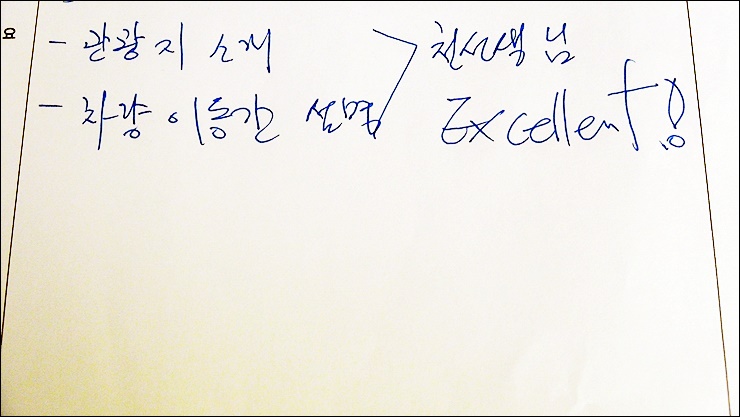 요
- 관광지 소개
- 차량 이동간 설명
천선생님
Excellent!